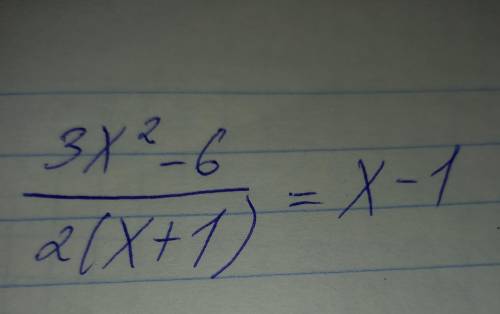 3x² - 6
2(x + 1) = x - 1